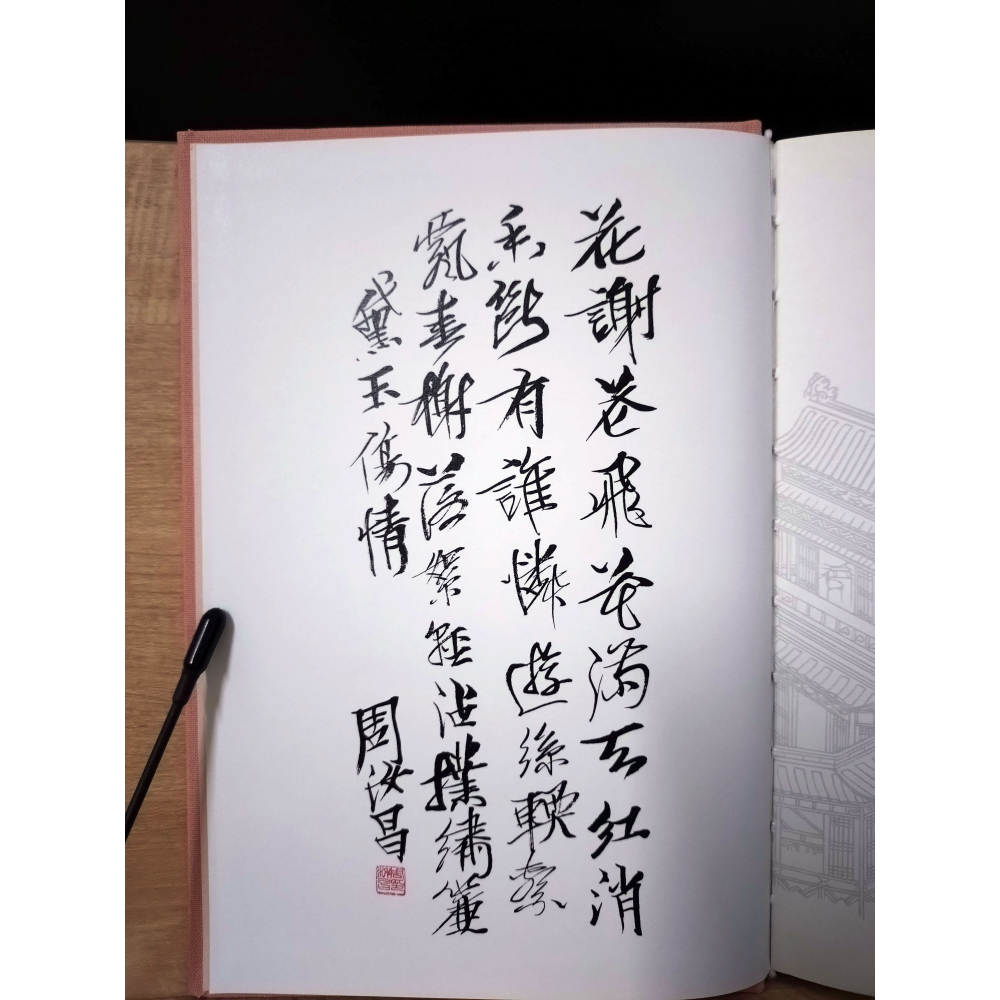 花謝花飛花滿天紅消
香斷有誰憐遊絲輭繫
飄春榭落絮輕沾撲繡簾
黛玉傷情
周汝昌